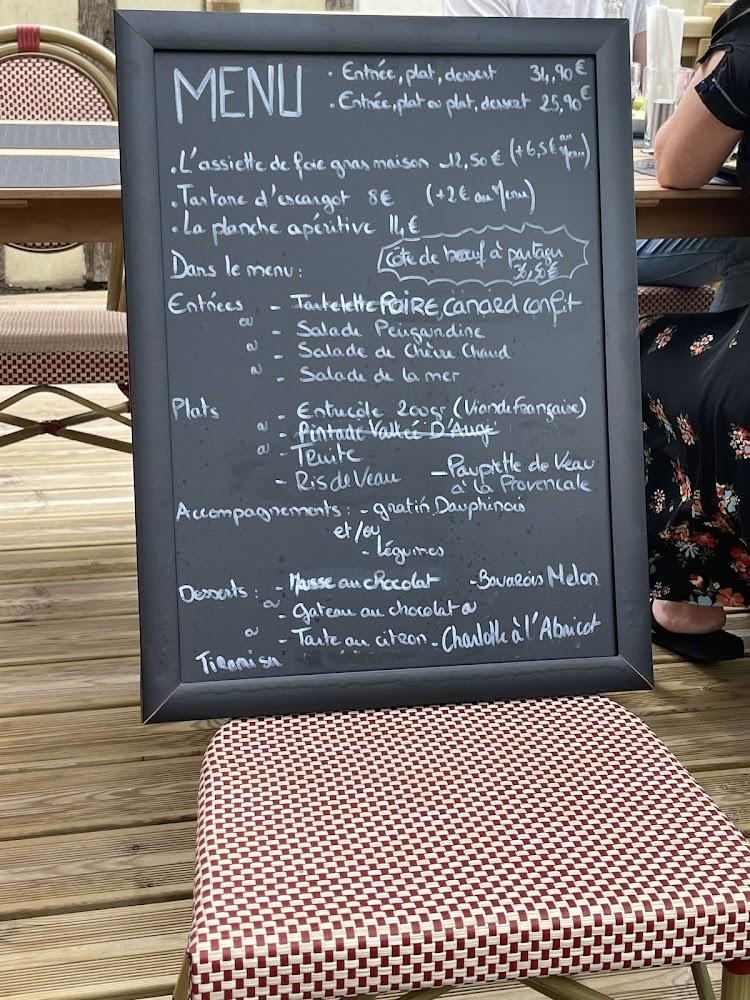 MENU
· Entrée, plat, dessert 34,90€
· Entrée, plat ou plat, dessert 25,90€
. L'assiette de foie gras maison 12,50€ (+6,5€ au Menu)
. Tartare d'escargot 8€ (+2€ au Menu)
. La planche apéritive 14€
Côte de bœuf à partager
Dans le menu :
Entrées - Tartelette POIRE, canard confit
ou - Salade Périgourdine
ou - Salade de Chèvre Chaud
ou - Salade de la mer
Plats - Entrecôte 200gr (Viande Française)
ou - Pintade Vallée D'Auge
ou - Truite
- Ris de Veau - Paupiette de Veau
à la Provencale
Accompagnements : - gratin Dauphinois
et/ou
- légumes
Desserts : - Mousse au chocolat - Bavarois Melon
ou - Gateau au chocolat ou
ou - Tarte au citron - Charlotte à l'Abricot
Tiramisu